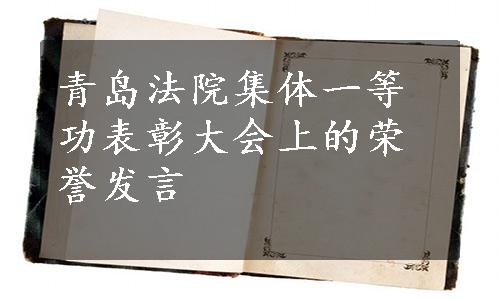 青岛法院集体一等
功表彰大会上的荣
誉发言